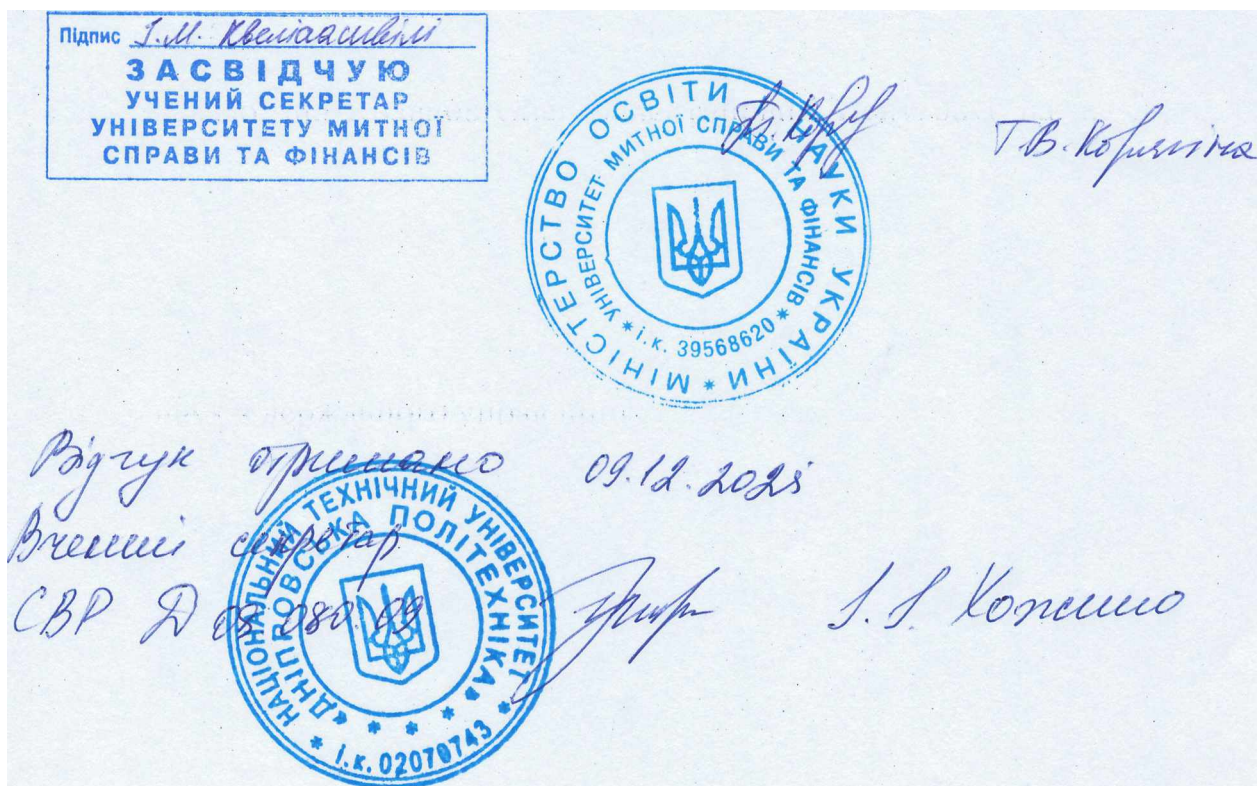 Підпис І.М. Квеліашвілі
ЗАСВІДЧУЮ
УЧЕНИЙ СЕКРЕТАР
УНІВЕРСИТЕТУ МИТНОЇ
СПРАВИ ТА ФІНАНСІВ
МІНІСТЕРСТВО ОСВІТИ І НАУКИ УКРАЇНИ *
УНІВЕРСИТЕТ МИТНОЇ СПРАВИ ТА ФІНАНСІВ
* і.к. 39568620 *
Т.В. Корягіна
Відгук отримано 09.12.2025
Вчений секретар
СВР Д 08.080.09
НАЦІОНАЛЬНИЙ ТЕХНІЧНИЙ УНІВЕРСИТЕТ
«ДНІПРОВСЬКА ПОЛІТЕХНІКА» * * * *
* І.К. 02070743 *